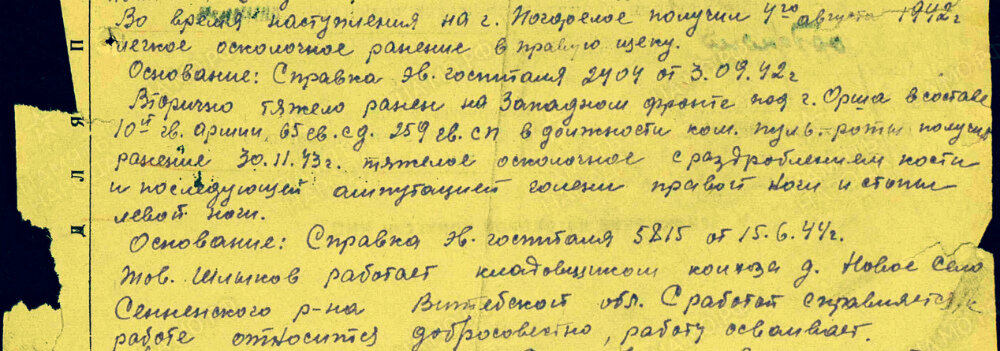 Во время наступления на г. Погорелое получил 4го августа 1942г
легкое осколочное ранение в правую щеку.
Основание: Справка эв. госпиталя 2404 от 3.09.42г
Вторично тяжело ранен на Западном фронте под г. Орша в составе
10й гв. армии, 65 гв. сд. 259 гв. сп в должности ком. пуль. роты получил
ранение 30.11.43г. тяжелое осколочное с раздроблением кости
и последующей ампутацией голени правой ноги и стопы
левой ноги.
Основание: Справка эв. госпиталя 5815 от 15.6.44г.
Тов. Шлыков работает кладовщиком колхоза д. Новое Село
Сенненского р-на Витебской обл. С работой справляется, к
работе относится добросовестно, работу осваивает.
Д Л Я П